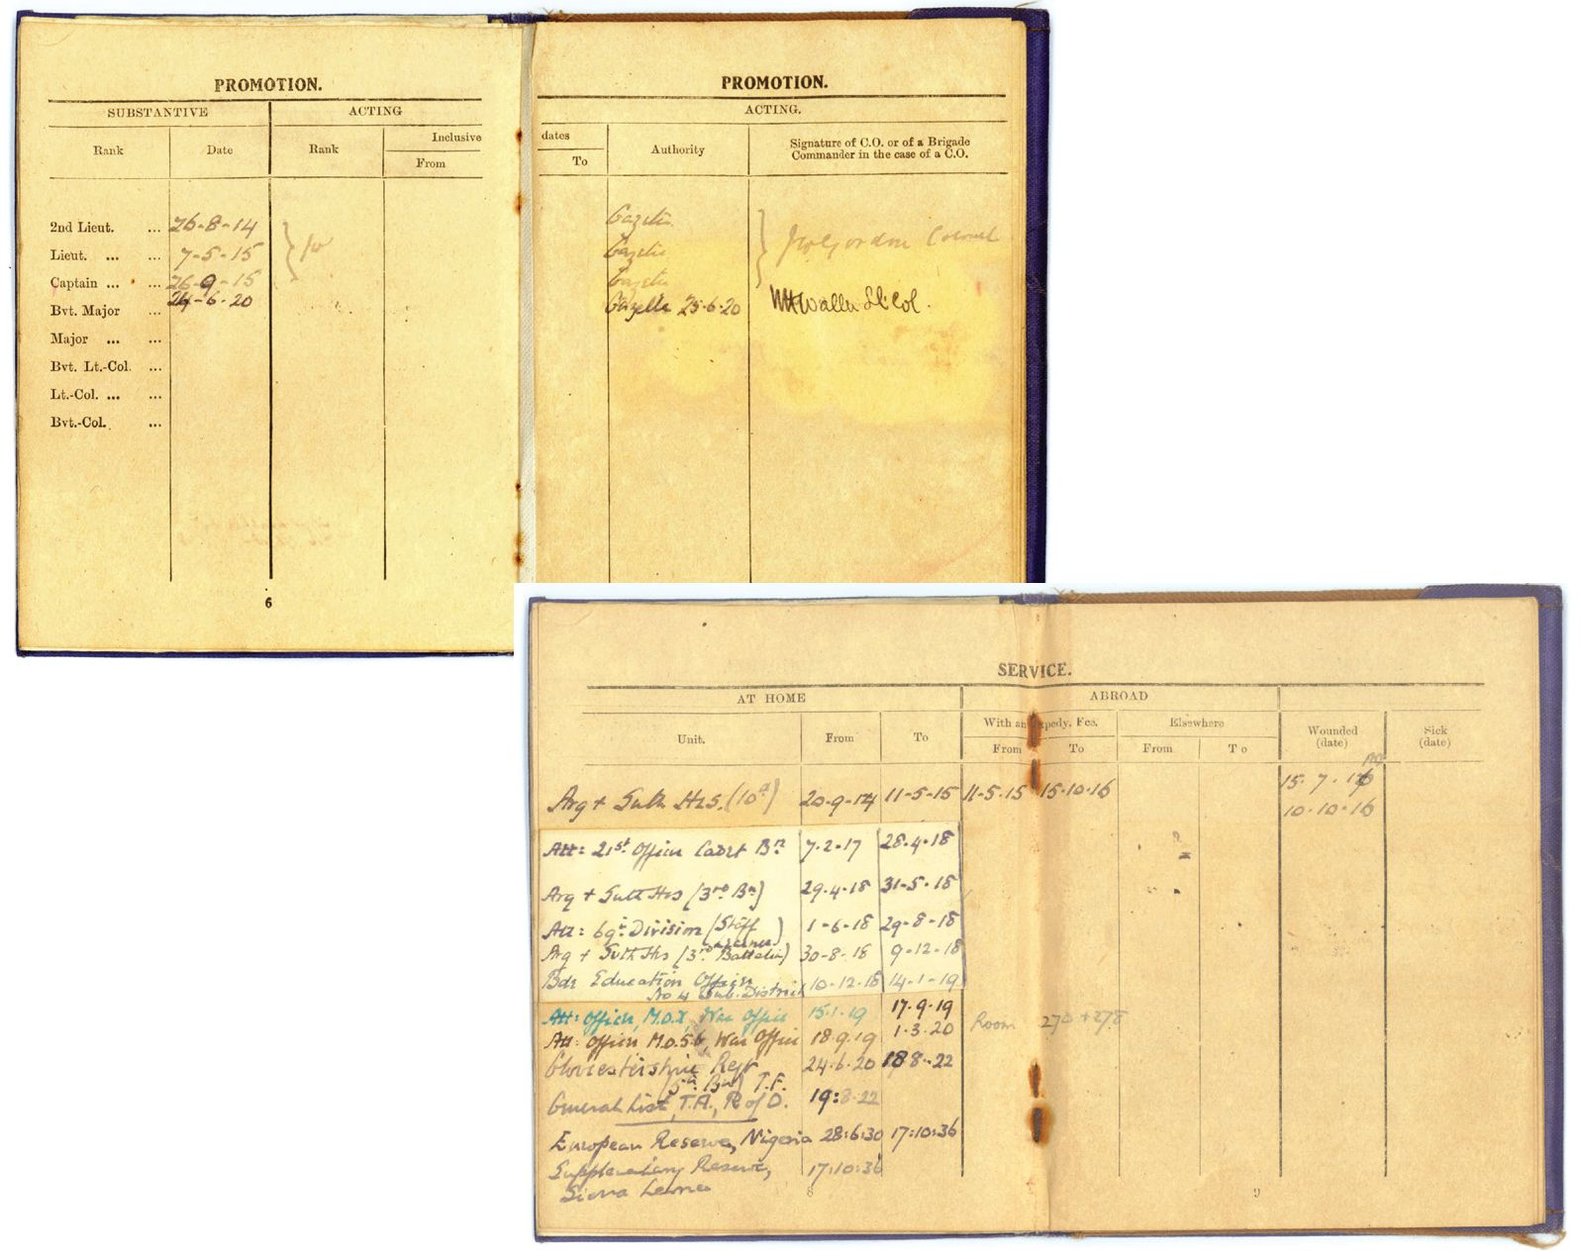 PROMOTION.
SUBSTANTIVE ACTING
Rank Date Rank Inclusive
From
2nd Lieut. ... 26-8-14
Lieut. ... ... 7-5-15
Captain ... ... 26-9-15
Bvt. Major ... 24-6-20
Major ... ...
Bvt. Lt.-Col. ...
Lt.-Col. ... ...
Bvt.-Col. ...
6
PROMOTION.
ACTING.
dates Authority Signature of C.O. or of a Brigade
To Commander in the case of a C.O.
Gazette
Gazette Gordon Colonel
Gazette
Gazette 25·6·20 Lt. Col.
SERVICE.
AT HOME ABROAD
Unit. From To With an Expedy. Fce. Elsewhere Wounded (date) Sick (date)
From To From To
Arg + Suth Hrs. (10th) 20-9-14 11-5-15 11-5-15 15·10·16 15·7·16
10·10·16
Att: 21st Officer Cadet Bn 7·2·17 28·4·18
Arg + Suth Hrs (3rd Bn) 29·4·18 31-5-18
Att: 69th Division (Staff 1-6-18 29-8-18
Arg + Suth Hrs (3rd Battalion) 30-8-18 9-12-18
Bde Education Officer 10·12·18 14-1-19
No 4 Sub. District
Att: Officer, M.O.X, War Office 15·1·19 17·9·19
Att: Officer M.O.5b, War Office 18·9·19 1·3·20 Room 270 + 278
Gloucestershire Regt 24·6·20 18·8·22
(5th Bn) T.F.
General List, T.A., R of O. 19:8·22
European Reserve, Nigeria 28:6:30 17:10:36
Supplementary Reserve, 17:10:36
Sierra Leone
8
9